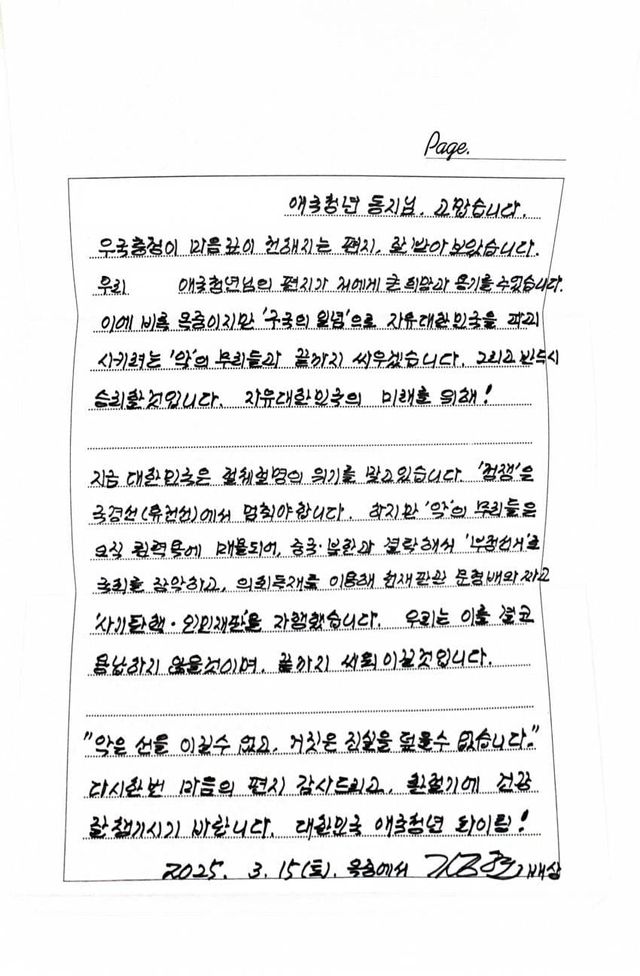 Page.
애국청년 동지님. 고맙습니다.
우국충정이 마음깊이 전해지는 편지, 잘 받아 보았습니다.
우리 애국청년님의 편지가 저에게 큰 희망과 용기를 주었습니다.
이에 비록 옥중이지만 '구국의 일념'으로 자유대한민국을 파괴
시키려는 '악'의 무리들과 끝까지 싸우겠습니다. 그리고 반드시
승리할것입니다. 자유대한민국의 미래를 위해!
지금 대한민국은 절체절명의 위기를 맞고있습니다. '정쟁'은
국경선(휴전선)에서 멈춰야합니다. 하지만 '악'의 무리들은
오직 권력욕에 매몰되어, 중국·북한과 결탁해서 '부정선거'로
국회를 장악하고, 의회독재를 이용해 헌재판관 문형배와 짜고
'사기탄핵·인민재판'을 자행했습니다. 우리는 이를 결코
용납하지 않을것이며, 끝까지 싸워이길것입니다.
"악은 선을 이길수 없고, 거짓은 진실을 덮을수 없습니다."
다시한번 마음의 편지 감사드리고, 환절기에 건강
잘챙기시기 바랍니다. 대한민국 애국청년 화이팅!
2025. 3. 15(토). 옥중에서 김용현 배상